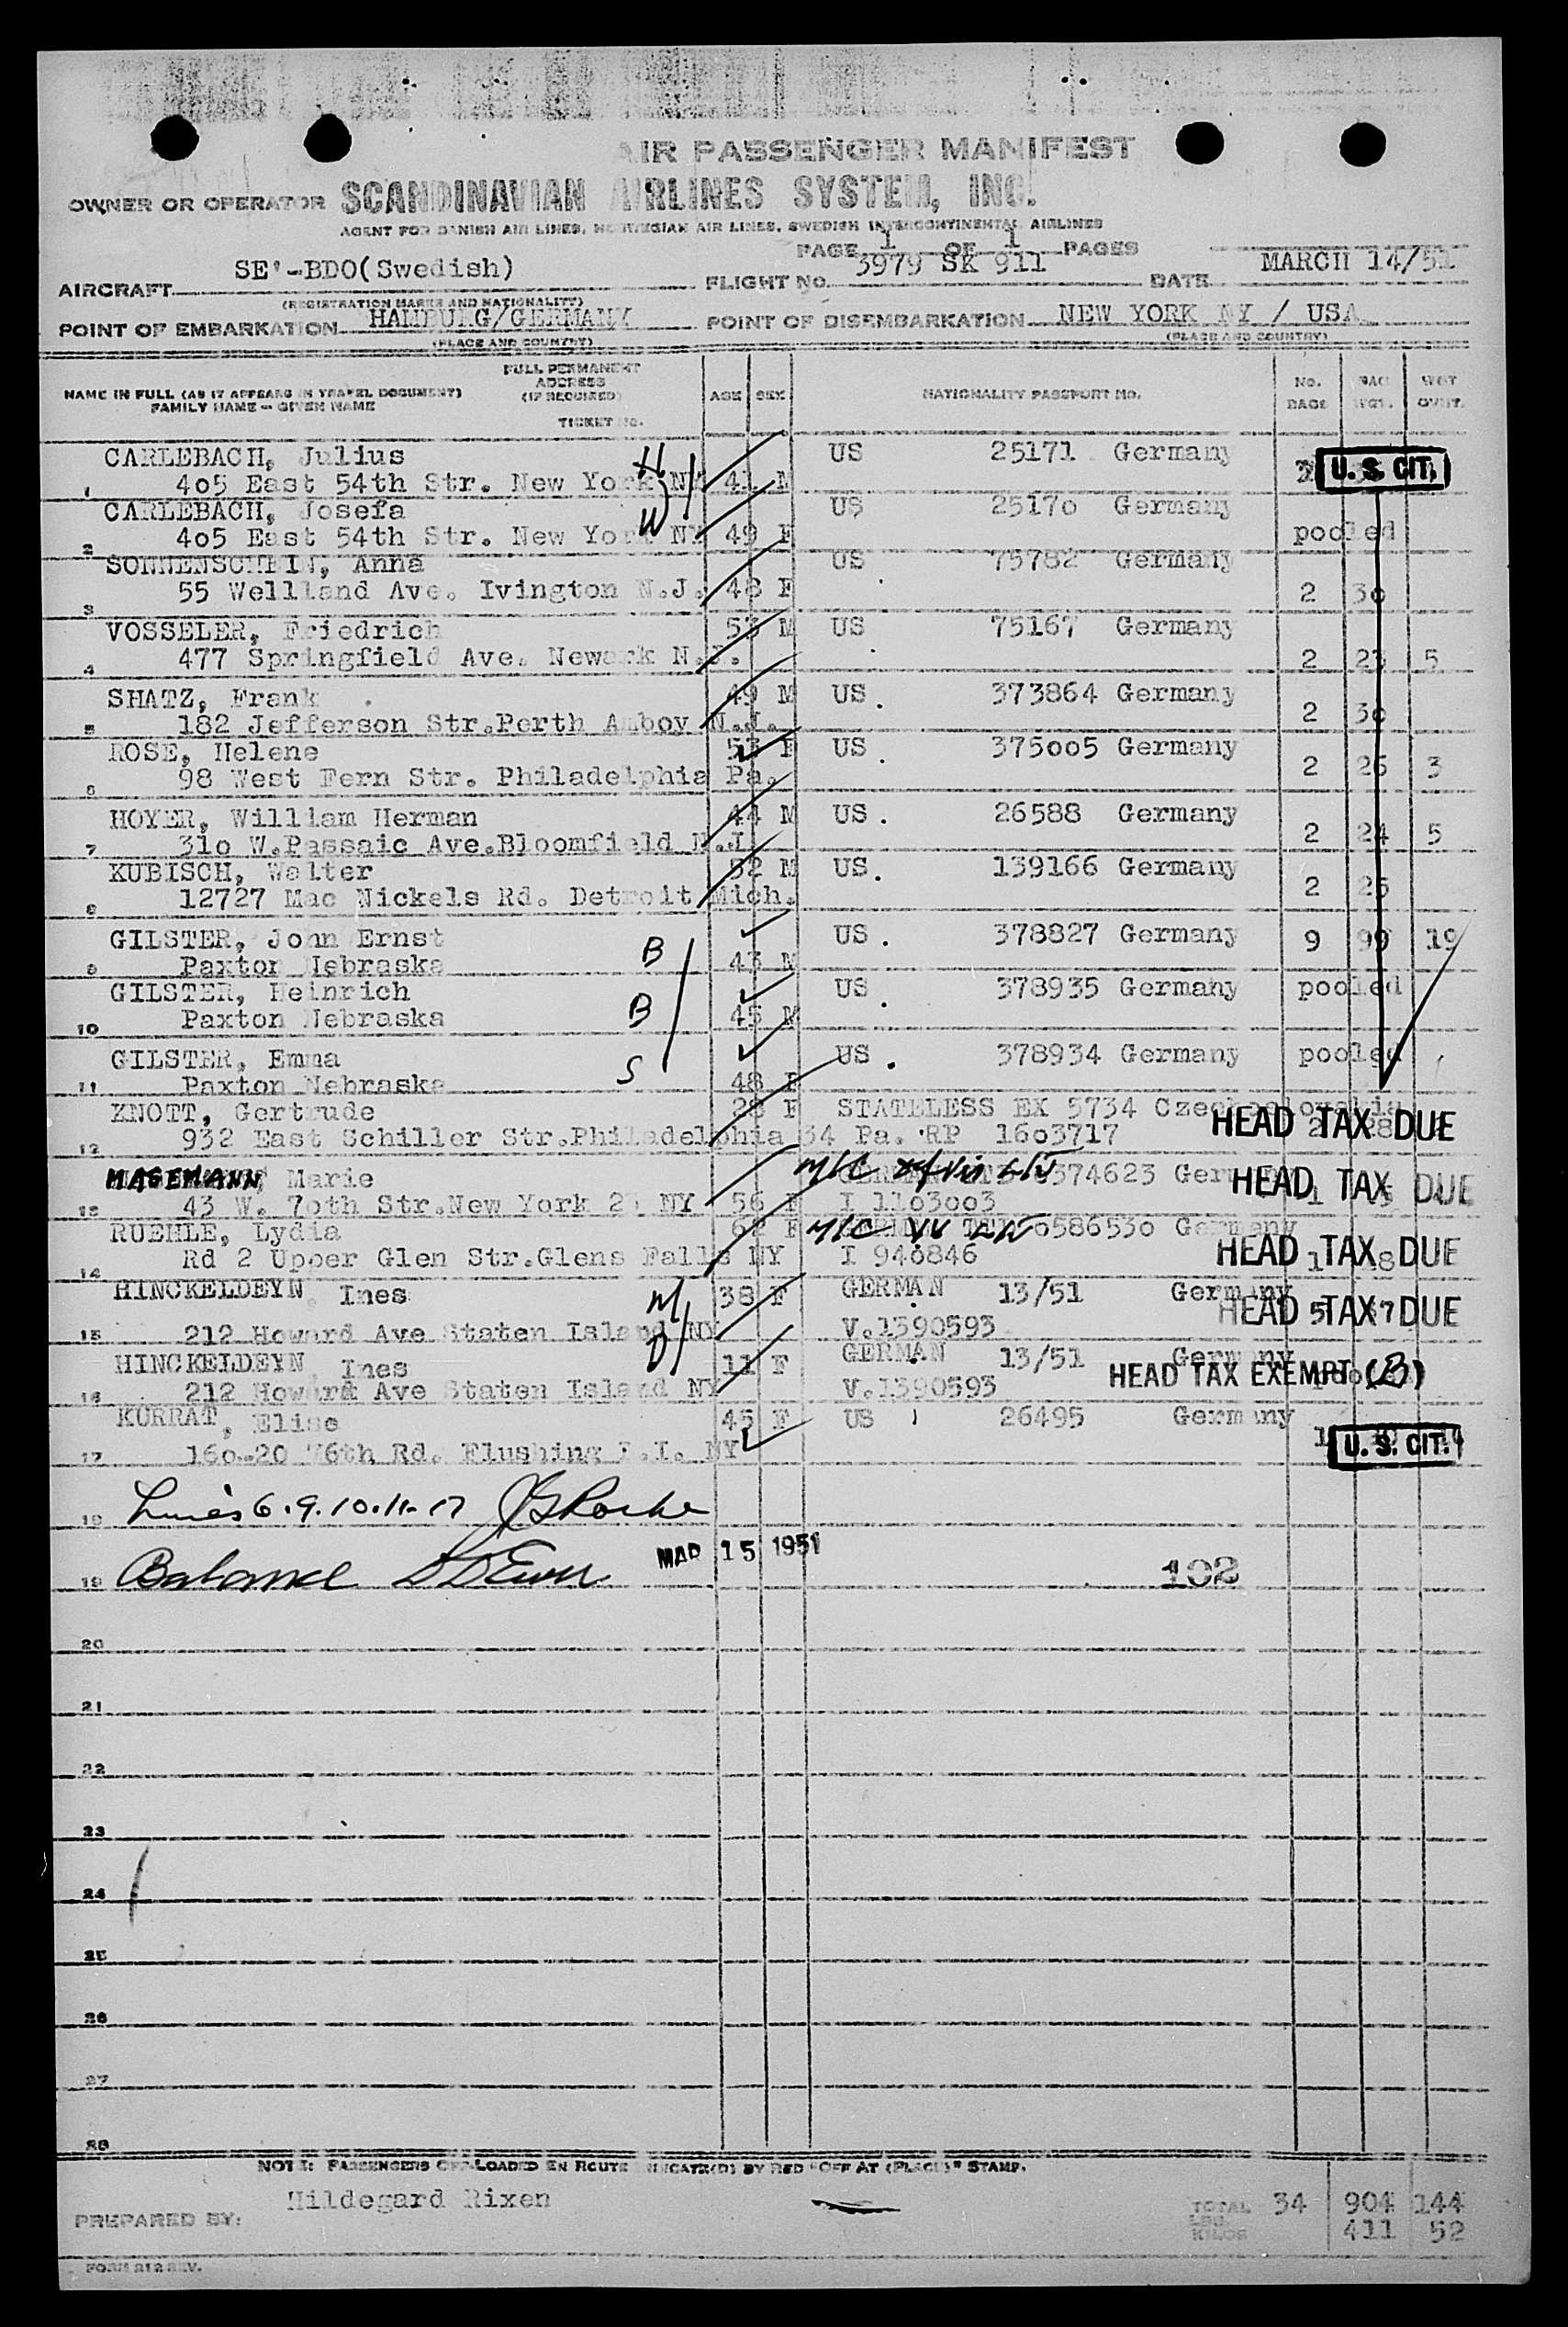 AIR PASSENGER MANIFEST
OWNER OR OPERATOR SCANDINAVIAN AIRLINES SYSTEM, INC.
AGENT FOR DANISH AIR LINES, NORWEGIAN AIR LINES, SWEDISH INTERCONTINENTAL AIRLINES
PAGE 1 OF 1 PAGES
AIRCRAFT SE'-BDO(Swedish) FLIGHT NO. 3979 SK 911 DATE MARCH 14/51
(REGISTRATION MARKS AND NATIONALITY)
POINT OF EMBARKATION HAMBURG/GERMANY POINT OF DISEMBARKATION NEW YORK NY / USA
(PLACE AND COUNTRY) (PLACE AND COUNTRY)
NAME IN FULL (AS IT APPEARS IN TRAVEL DOCUMENT) FAMILY NAME - GIVEN NAME
FULL PERMANENT ADDRESS (IF REQUIRED) TICKET NO.
AGE SEX NATIONALITY PASSPORT NO. No. BAGS BAG WGT. WGT OVWT.
CARLEBACH, Julius H US 25171 Germany U. S. CIT.
1 405 East 54th Str. New York NY 41 M
CARLEBACH, Josefa W US 25170 Germany
2 405 East 54th Str. New York NY 49 F pooled
SONNENSCHEIN, Anna US 75782 Germany
3 55 Wellland Ave. Ivington N.J. 48 F 2 30
VOSSELER, Friedrich 53 M US 75167 Germany
4 477 Springfield Ave. Newark N.J. 2 23 5
SHATZ, Frank 49 M US. 373864 Germany
5 182 Jefferson Str.Perth Amboy N.J. 2 30
ROSE, Helene 53 F US. 375005 Germany
6 98 West Fern Str. Philadelphia Pa. 2 26 3
HOYER, William Herman 44 M US. 26588 Germany
7 310 W.Passaic Ave.Bloomfield N.J. 2 24 5
KUBISCH, Walter 52 M US. 139166 Germany
8 12727 Mac Nickels Rd. Detroit Mich. 2 25
GILSTER, John Ernst B US. 378827 Germany 9 99 19
9 Paxton Nebraska 43 M
GILSTER, Heinrich B US. 378935 Germany pooled
10 Paxton Nebraska 45 M
GILSTER, Emma S US. 378934 Germany pooled
11 Paxton Nebraska 48 F
KNOTT, Gertrude 28 F STATELESS EX 5734 Czechoslovakia
12 932 East Schiller Str.Philadelphia 34 Pa. RP 1603717 HEAD TAX DUE
MAGEMANN, Marie 0374623 Germany
13 43 W. 70th Str.New York NY 56 F I 1103003 HEAD TAX DUE
RUEHLE, Lydia 62 F 0586530 Germany
14 Rd 2 Upper Glen Str.Glens Falls NY I 940846 HEAD TAX DUE
HINCKELDEYN, Ines M 38 F GERMAN 13/51 Germany
15 212 Howard Ave Staten Island NY V.1390593 HEAD TAX DUE
HINCKELDEYN, Ines D 11 F GERMAN 13/51 Germany
16 212 Howard Ave Staten Island NY V.1390593 HEAD TAX EXEMPT (B)
KURRAT, Elise 45 F US 26495 Germany
17 160-20 76th Rd. Flushing L.I. NY U. S. CIT.
18 Lines 6.9.10.11-17
19 Balance MAR 15 1951 102
20
21
22
23
24
25
26
27
28
NOTE: PASSENGERS OFF-LOADED EN ROUTE INDICATE(D) BY RED "OFF AT (PLACE)" STAMP.
PREPARED BY: Hildegard Rixen
TOTAL 34
LBS. 904 144
KILOS 411 52
FORM 212 REV.